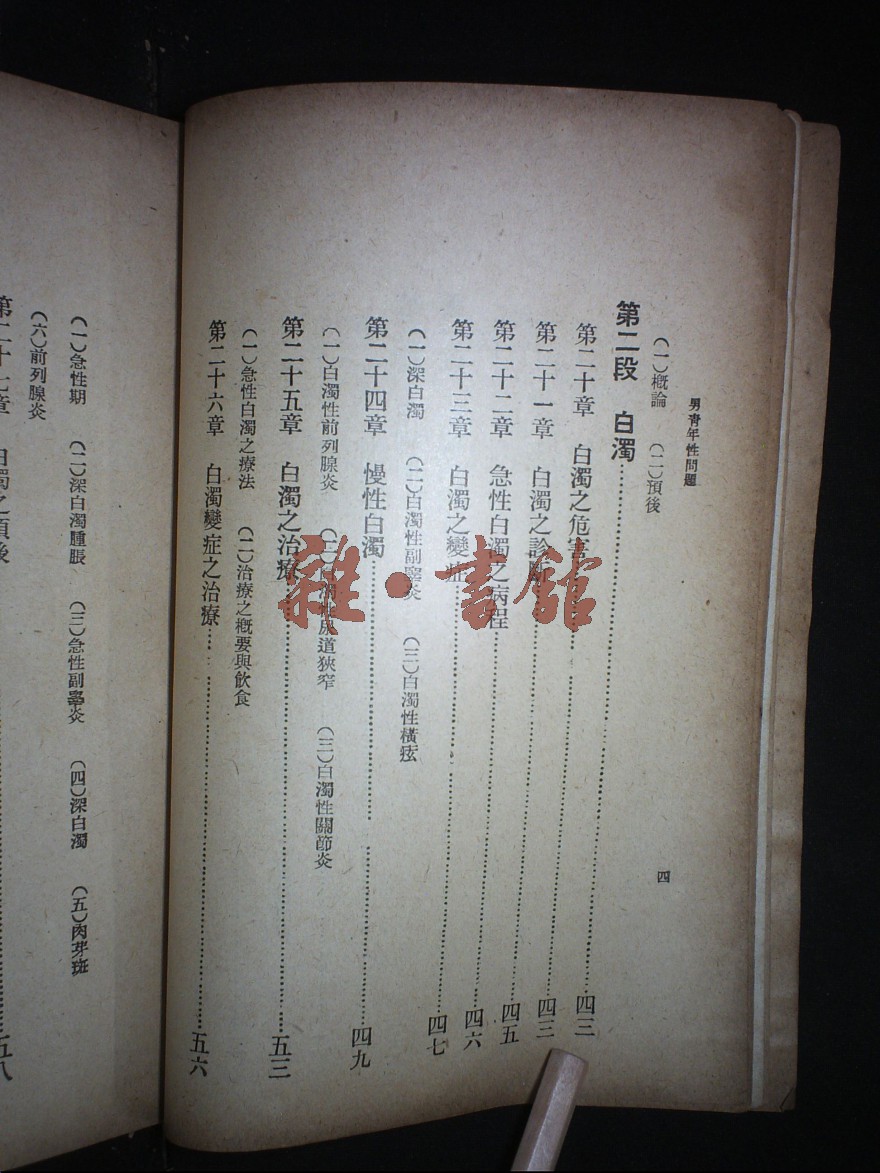 男青年性問題 四
(一)概論 (二)預後
第二段 白濁……四三
第二十章 白濁之危害……四三
第二十一章 白濁之診斷……四五
第二十二章 急性白濁之病程……四六
第二十三章 白濁之變症……四七
(一)深白濁 (二)白濁性副睪炎 (三)白濁性橫痃
第二十四章 慢性白濁……四九
(一)白濁性前列腺炎 (二)白濁性尿道狹窄 (三)白濁性關節炎
第二十五章 白濁之治療……五三
(一)急性白濁之療法 (二)治療之概要與飲食
第二十六章 白濁變症之治療……五六
(一)急性期 (二)深白濁腫脹 (三)急性副睪炎 (四)深白濁 (五)肉芽斑
(六)前列腺炎
第二十七章 白濁之預後……五八
雜·書館